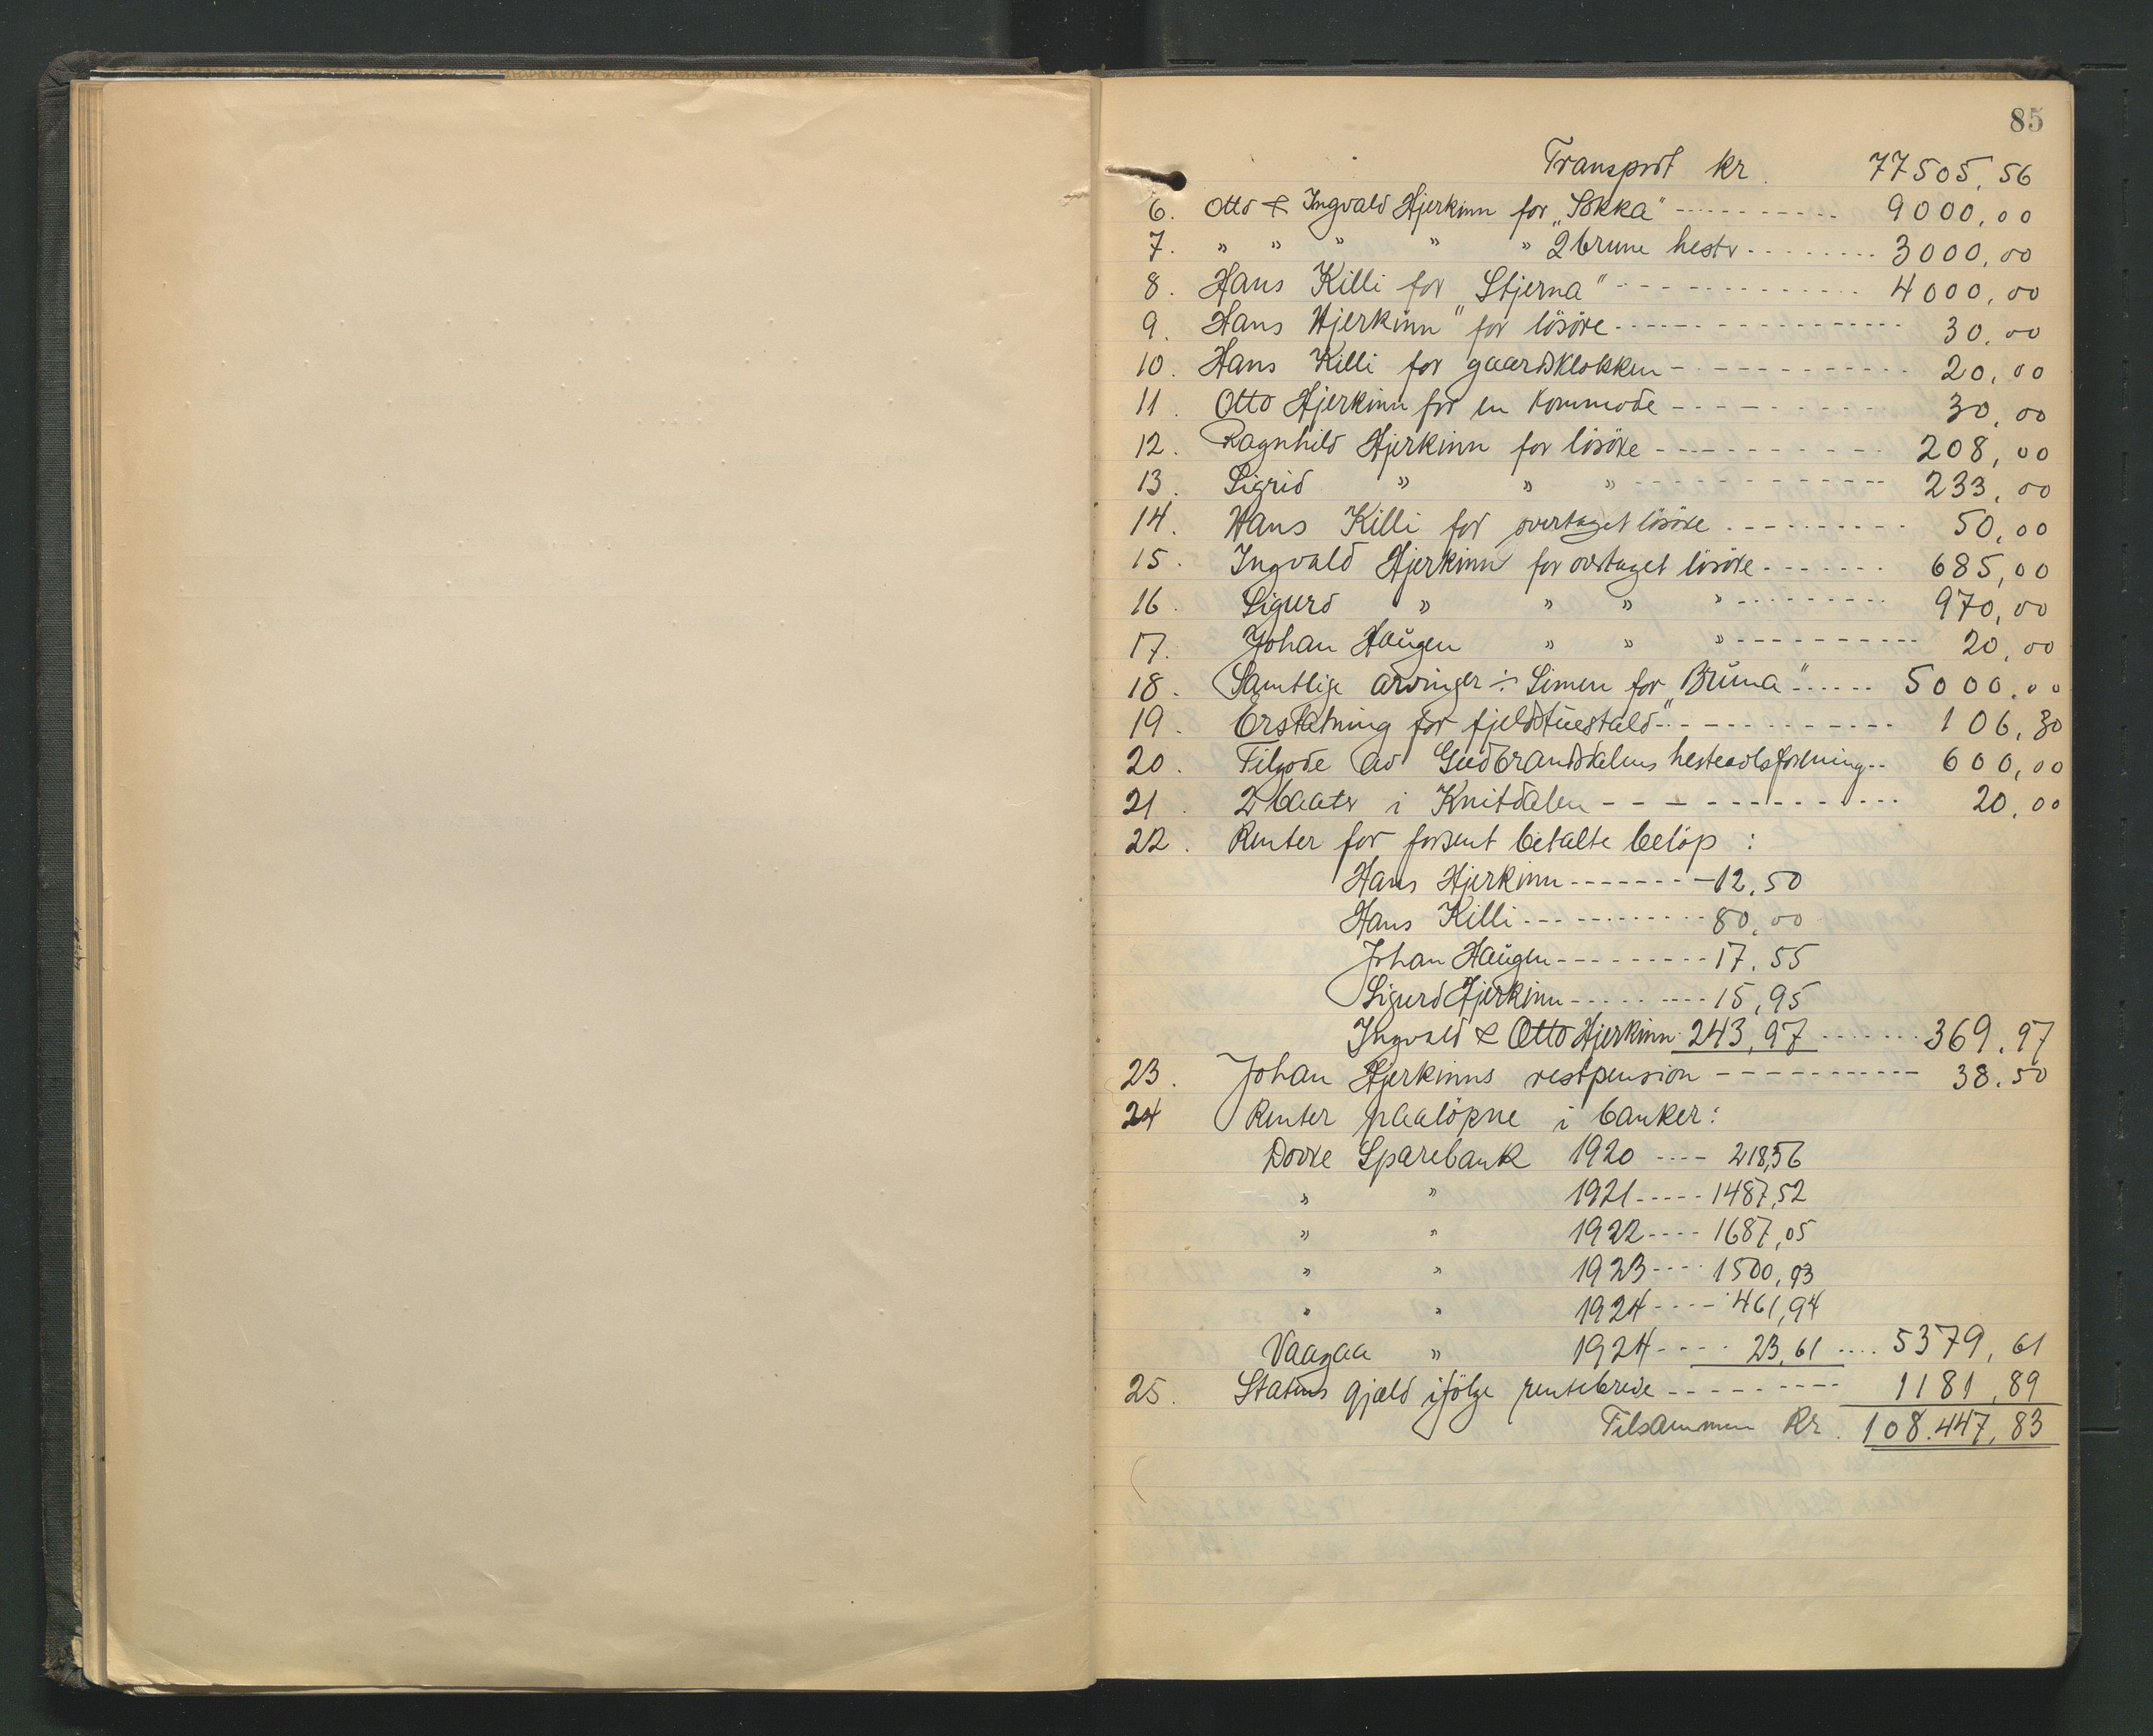 85
Transport kr. 77505,56
6. Otto & Ingvald Hjerkinn for "Sokka" ---------- 9000,00
7. " " " " " 2 brune hestr ........ 3000,00
8. Hans Killi for "Stjerna" ------------ 4000,00
9. Hans Hjerkinn for lösöre ---------------- 30,00
10. Hans Killi for gaardsklokken ------------ 20,00
11. Otto Hjerkinn for en kommode --------- 30,00
12. Ragnhild Hjerkinn for lösöre ---------- 208,00
13. Sigrid " " " ------------ 233,00
14. Hans Killi for overtaget lösöre --------- 50,00
15. Ingvald Hjerkinn for overtaget lösöre ------- 685,00
16. Sigurd " " " " --------- 970,00
17. Johan Haugen " " " ---------- 20,00
18. Samtlige arvinger ÷ Simen for "Bruna" ...... 5000,00
19. Erstatning for fjeldstuestald ------------ 106,30
20. Tilgode av Gudbrandsdalens hesteavlsforening .. 600,00
21. 2 baater i Knitdalen ------------ 20,00
22. Renter for forsent betalte belöp :
Hans Hjerkinn -------- 12,50
Hans Killi ---------- 80,00
Johan Haugen --------- 17,55
Sigurd Hjerkinn --------- 15,95
Ingvald & Otto Hjerkinn 243,97 ....... 369,97
23. Johan Hjerkinns restpension ----------- 38,50
24 Renter paalöpne i banker:
Dovre Sparebank 1920 ---- 218,56
" " 1921 ----- 1487,52
" " 1922 ---- 1687,05
" " 1923 ---- 1500,93
" " 1924 ---- 461,94
Vaagaa " 1924 ---- 23,61 .... 5379,61
25. Statens gjæld ifölge rentebreve --------- 1181,89
Tilsammen Kr. 108.447,83